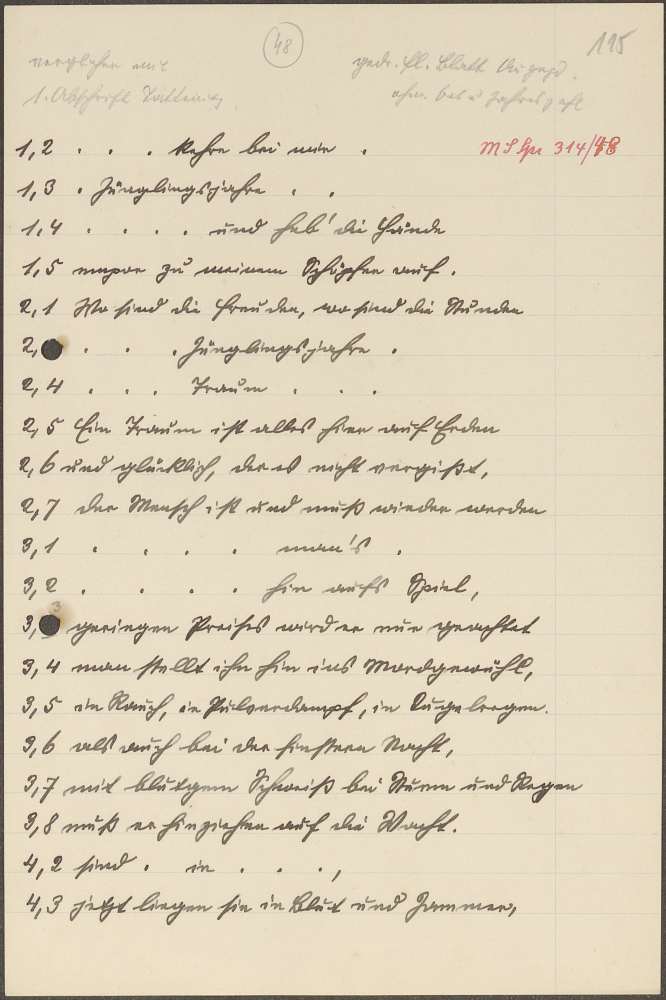 48
195
verglichen mit
1. Abschrift
gedr. fl. Blatt
ohne u Jahreszahl
1,2 . . . Kehre bei mir .
M S Gu 314/48
1,3 . Jünglingsjahre . .
1,4 . . . . und heb' die Hände
1,5 empor zu meinem Schöpfer auf.
2,1 Wo sind die Freuden, wo sind die Stunden
2, . . . Jünglingsjahre .
2,4 . . . Traum . . .
2,5 Ein Traum ist alles hier auf Erden
2,6 und glücklich, der es nicht vergißt,
2,7 der Mensch ist und muß wieder werden
3,1 . . . . man's .
3,2 . . . . hin aufs Spiel,
3,3 geringen Preises wird er nur geachtet
3,4 man stellt ihn hin ins Mordgewühl,
3,5 in Rauch, in Pulverdampf, in Kugelregen.
3,6 als auch bei der finstern Nacht,
3,7 mit blutgem Schweiß bei Sturm und Regen
3,8 muß er hinziehen auf die Wacht.
4,2 sind . in . . . ,
4,3 jetzt liegen sie in Blut und Jammer,